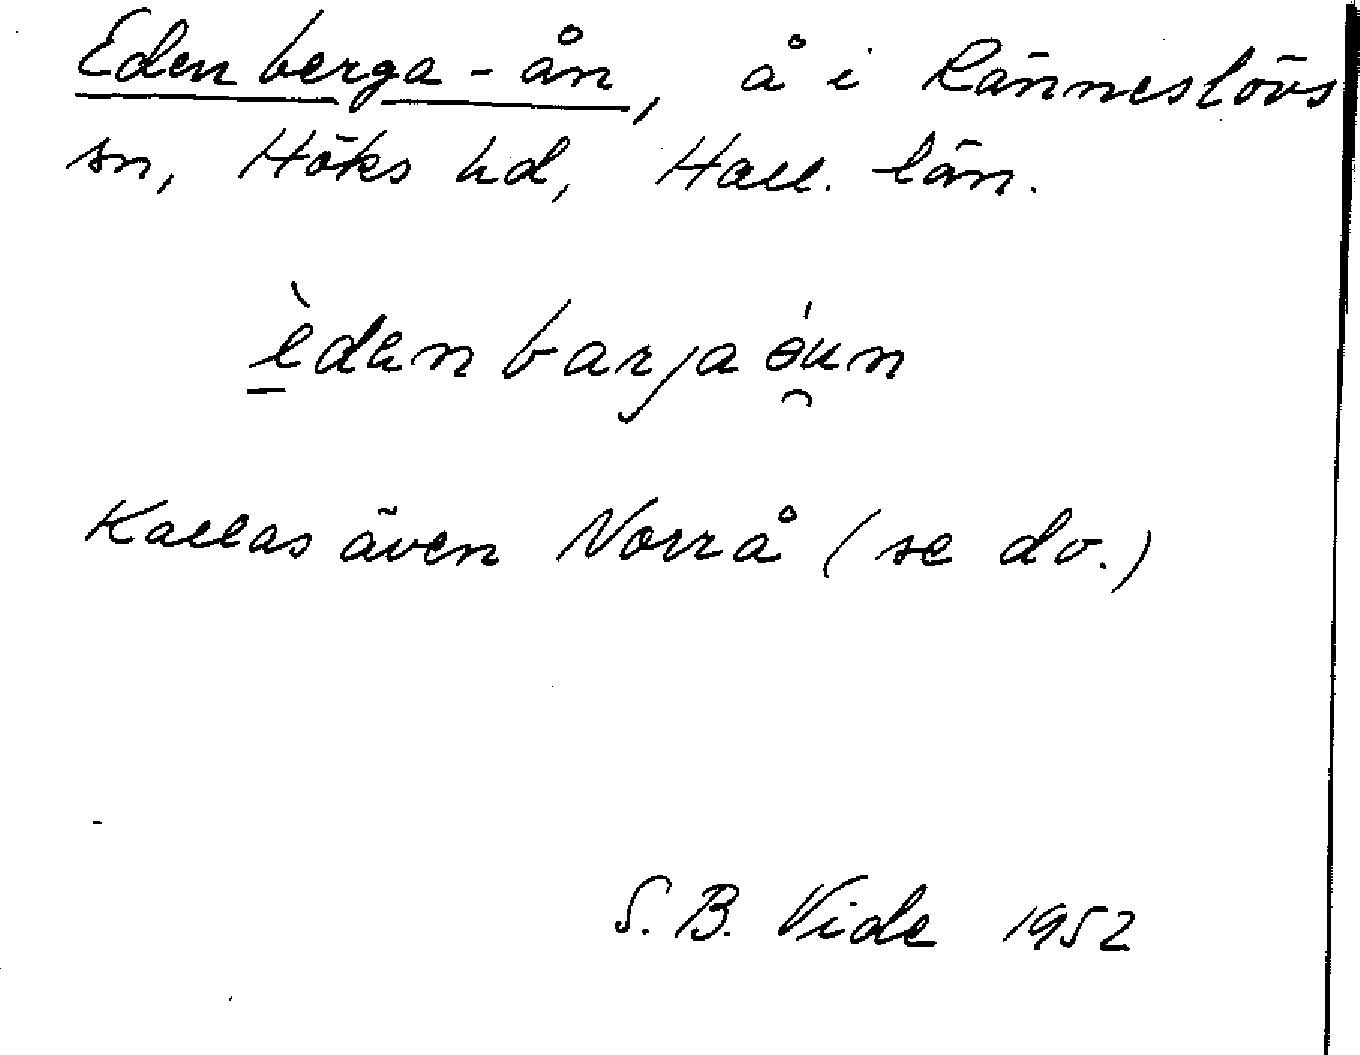 Edenberga-ån, å i Ränneslövs
sn, Höks hd, Hall. län.
èdenbarjaǝ́u̯n
Kallas även Norrå (se do.)
S. B. Vide 1952